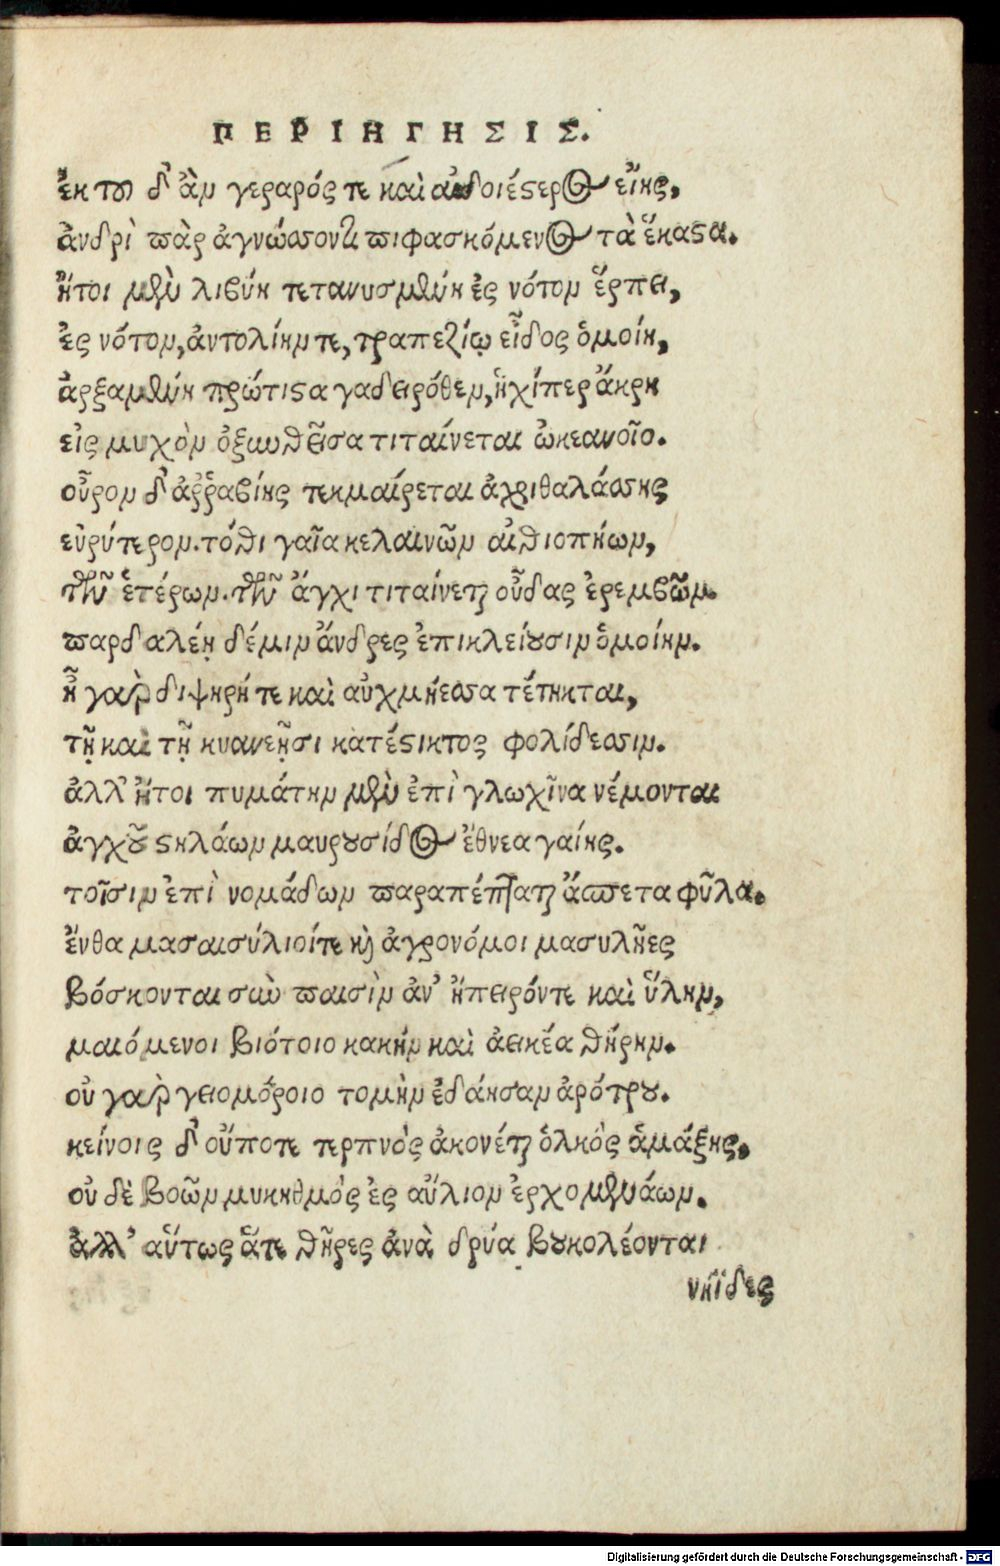 ΠΕΡΙΗΓΗΣΙΣ.
ἐκ τοῦ δ᾽ ἂν γεραρός τε καὶ αἰδοιέστερος εἴης,
ἀνδρὶ παρ ἀγνώσσοντι πιφασκόμενος τὰ ἕκαστα.
ἤτοι μὲν λιβύη τετανυσμένη ἐς νότον ἕρπει,
ἐς νότον, ἀντολίην τε, τραπεζίῳ εἶδος ὁμοίη,
ἀρξαμένη πρώτιστα γαδειρόθεν, ἡχίπερ ἄκρη
εἰς μυχὸν ὀξυνθεῖσα τιταίνεται ὠκεανοῖο.
οὖρον δ᾽ ἀῤῥαβίης τεκμαίρεται ἀχριθαλάσσης
εὐρύτερον. τόθι γαῖα κελαινῶν αἰθιοπήων,
τῶν ἑτέρων. τῶν ἄγχι τιταίνεται οὖδας ἐρεμβῶν.
παρδαλέῃ δέμιν ἄνδρες ἐπικλείουσιν ὁμοίην.
ἦ γαρ διψηρή τε καὶ αὐχμήεσσα τέτηκται,
τῇ καὶ τῇ κυανεῇσι κατέστικτος φολίδεσσιν.
ἀλλ᾽ ἤτοι πυμάτην μὲν ἐπὶ γλωχῖνα νέμονται
ἀγχοῦ στηλάων μαυρουσίδος ἔθνεα γαίης.
τοῖσιν ἐπὶ νομάδων παραπέπταται ἄσπετα φῦλα.
ἔνθα μασαισύλιοίτε καὶ ἀγρονόμοι μασυλῆες
βόσκονται σὺν παισὶν ἀν᾽ ἤπειρόντε καὶ ὕλην,
μαιόμενοι βιότοιο κακὴν καὶ ἀεικέα θήρην.
οὐ γαρ γειομόροιο τομὴν ἐδάησαν ἀρότρου.
κείνοις δ᾽ οὔποτε τερπνὸς ἀκονέται ὁλκὸς ἁμάξης,
οὐ δὲ βοῶν μυκηθμὸς ἐς αὔλιον ἐρχομενάων.
ἀλλ᾽ αὕτως ἅτε θῆρες ἀνὰ δρύα βουκολέονται
νήϊδες
Digitalisierung gefördert durch die Deutsche Forschungsgemeinschaft - DFG